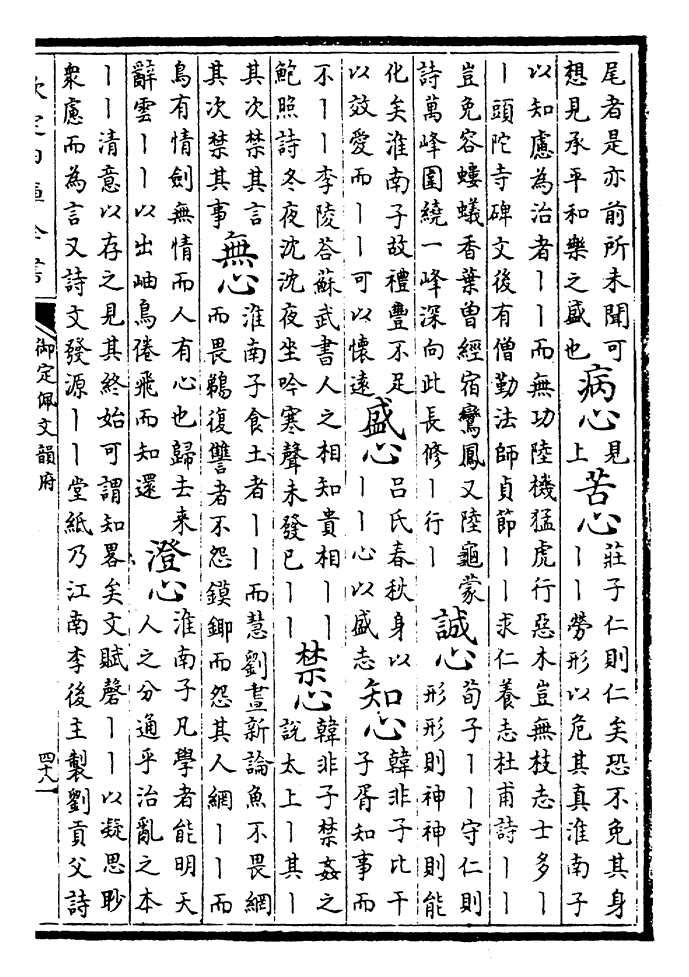 尾者是亦前所未聞可
想見承平和樂之盛也
病心
見
上
苦心
莊子仁則仁矣恐不免其身
丨丨勞形以危其真淮南子
以知慮為治者丨丨而無功陸機猛虎行惡木豈無枝志士多丨
丨頭陀寺碑文後有僧勤法師貞節丨丨求仁養志杜甫詩丨丨
豈免容螻蟻香葉曾經宿鸞鳳又陸龜蒙
詩萬峰圍繞一峰深向此長修丨行丨
誠心
荀子丨丨守仁則
形形則神神則能
化矣淮南子故禮豐不足
以效愛而丨丨可以懷遠
盛心
呂氏春秋身以
丨丨心以盛志
知心
韓非子比干
子胥知事而
不丨丨李陵荅蘇武書人之相知貴相丨丨
鮑照詩冬夜沈沈夜坐吟寒聲未發已丨丨
禁心
韓非子禁姦之
說太上丨其丨
其次禁其言
其次禁其事
無心
淮南子食土者丨丨而慧劉晝新論魚不畏網
而畏鵜復讐者不怨鏌鎁而怨其人網丨丨而
鳥有情劍無情而人有心也歸去來
辭雲丨丨以出岫鳥倦飛而知還
澄心
淮南子凡學者能明天
人之分通乎治亂之本
丨丨清意以存之見其終始可謂知畧矣文賦罄丨丨以凝思眇
眾慮而為言又詩文發源丨丨堂紙乃江南李後主製劉貢父詩
欽定四庫全書
御定佩文韻府